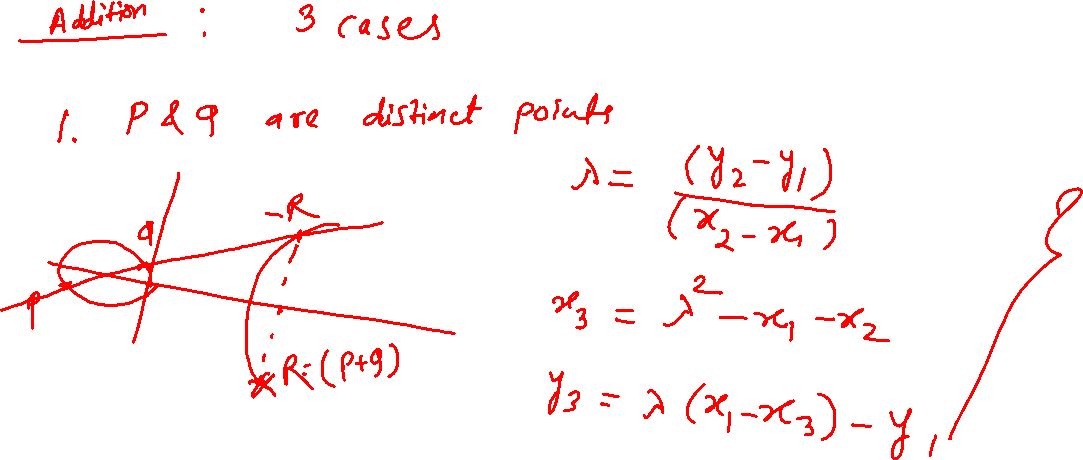 Addition : 3 cases
1. P & q are distinct points
λ = (y₂ - y₁) / (x₂ - x₁)
-R
q
P
x₃ = λ² - x₁ - x₂
R = (P+q)
y₃ = λ (x₁ - x₃) - y₁